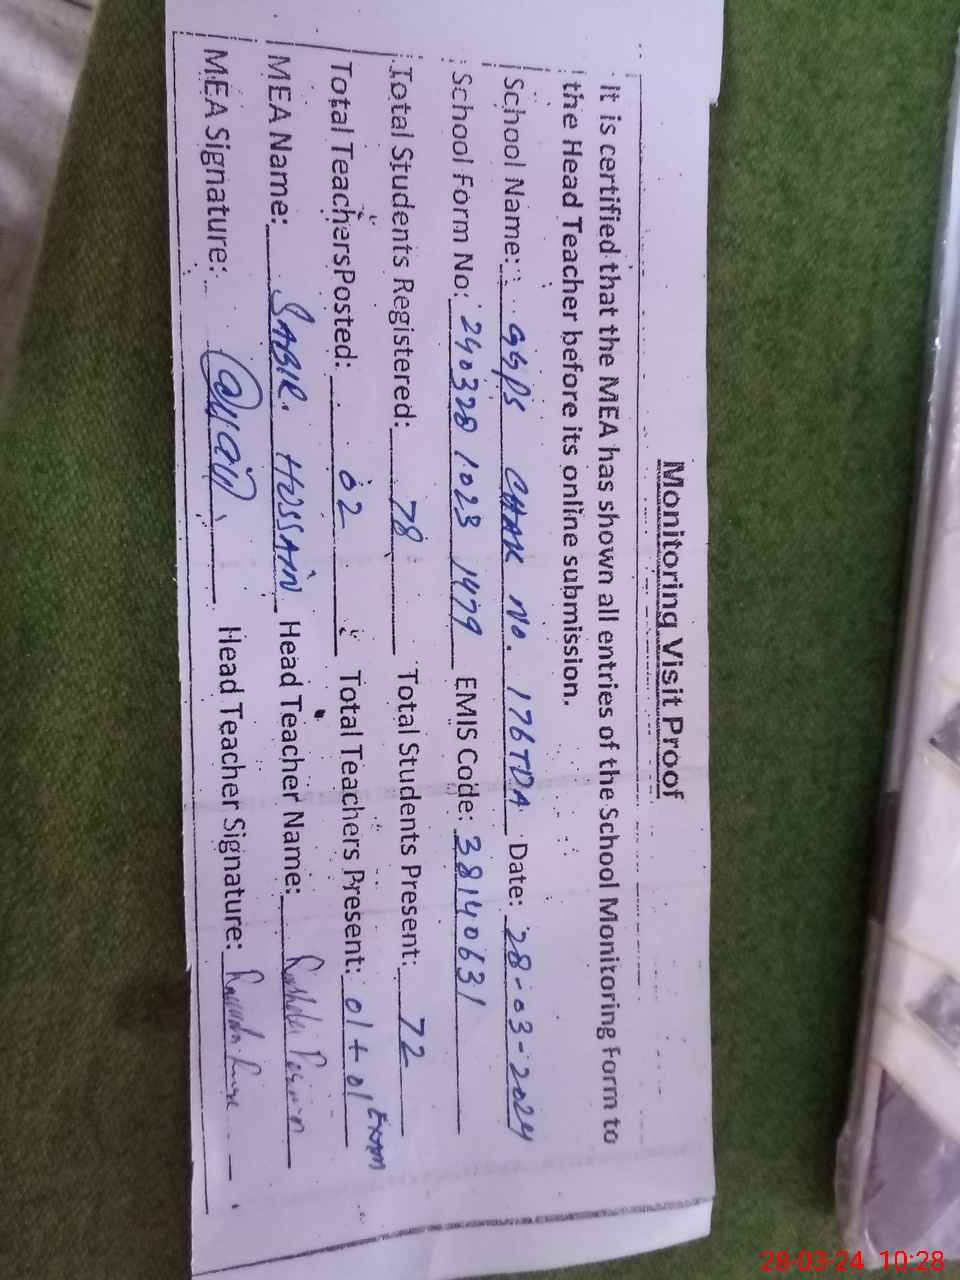 Monitoring Visit Proof
It is certified that the MEA has shown all entries of the School Monitoring Form to
the Head Teacher before its online submission.
School Name: GGPS CHAK No. 176 TDA Date: 28-03-2024
School Form No: 240328 1023 1479 EMIS Code: 38140631
Total Students Registered: 78 Total Students Present: 72
Total TeachersPosted: 02 Total Teachers Present: 01 + 01 Exam
MEA Name: SABIR HUSSAIN Head Teacher Name:
MEA Signature: Head Teacher Signature:
28-03-24 10:28